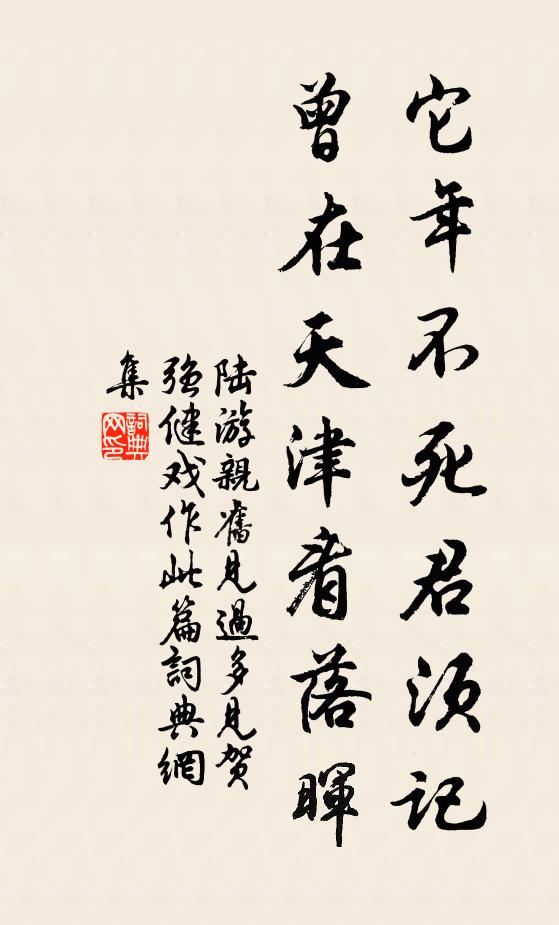 它年不死君须记
曾在天津看落暉
陆游親舊見過多見贺
强健戏作此篇詞典網
集
詞典
网印